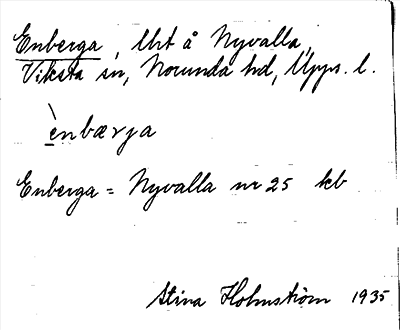 Enberga, Uht å Nyvalla,
Viksta sn, Norunda hd, Upps. l.
ènbærja
Enberga = Nyvalla nr 25 kb
Stina Holmström 1935